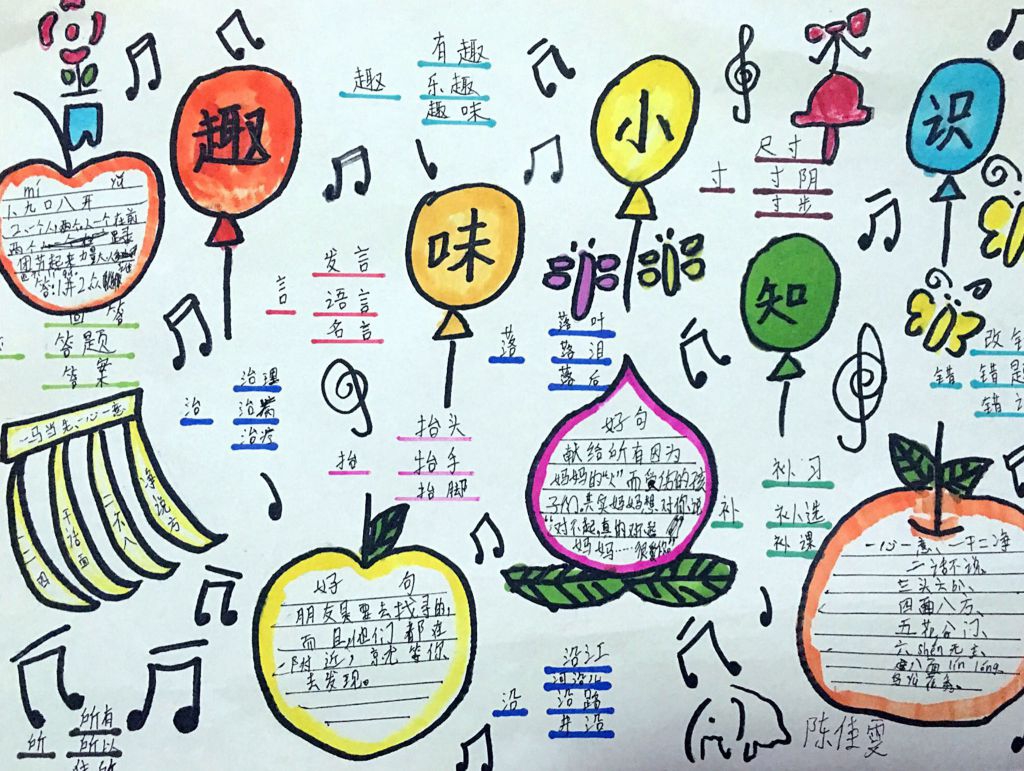 趣
小
识
味
知
趣
有趣
乐趣
趣味
寸
尺寸
寸阴
寸步
mí
1、九口八开
2、一个人,两个人,一个在前
两个
团结起来力量大
答:1.井2.众
回答
答题
答案
言
发言
语言
名言
治
治理
治病
治疗
抬
抬头
抬手
抬脚
落
落叶
落泪
落后
错
错题
补
补习
补选
补课
一马当先、一心一意
好句
献给所有因为
妈妈的“火”而受伤的孩
子们,其实妈妈想对你说
“对不起,真的对不起
妈妈……很爱你”
好句
朋友是要去找寻的,
而且他们都在
附近,京尤等你
去发现。
一心一意、一干二净
二话不说、
三头六臂、
四面八方、
五花八门、
六shén无主、
沿
沿江
河沿儿
沿路
井沿
所
所有
所以
陈佳雯